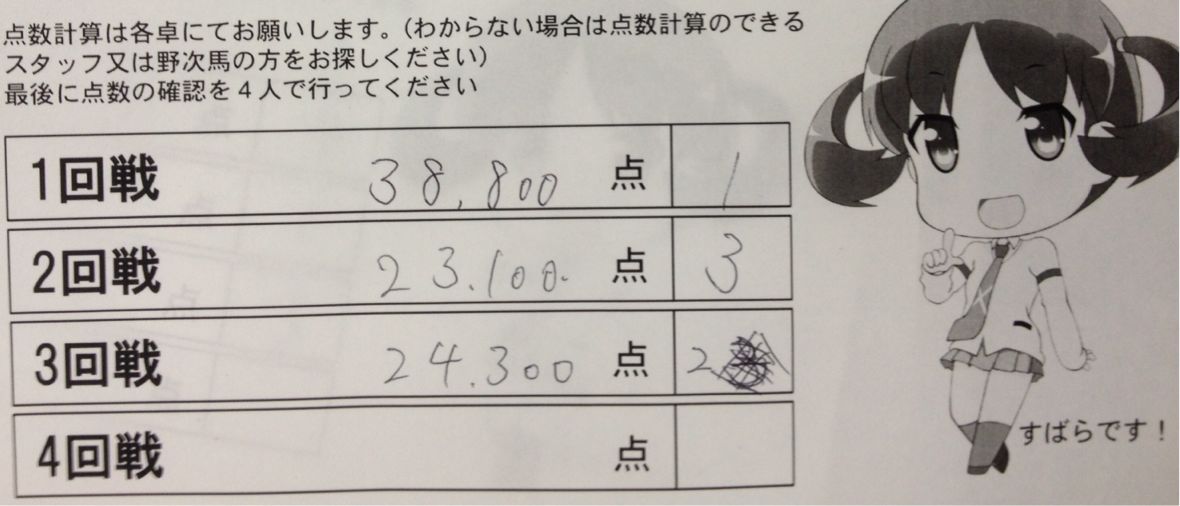 点数計算は各卓にてお願いします。(わからない場合は点数計算のできる
スタッフ又は野次馬の方をお探しください)
最後に点数の確認を4人で行ってください
1回戦 38,800 点 1
2回戦 23.100. 点 3
3回戦 24.300 点 2
4回戦 点
すばらです!